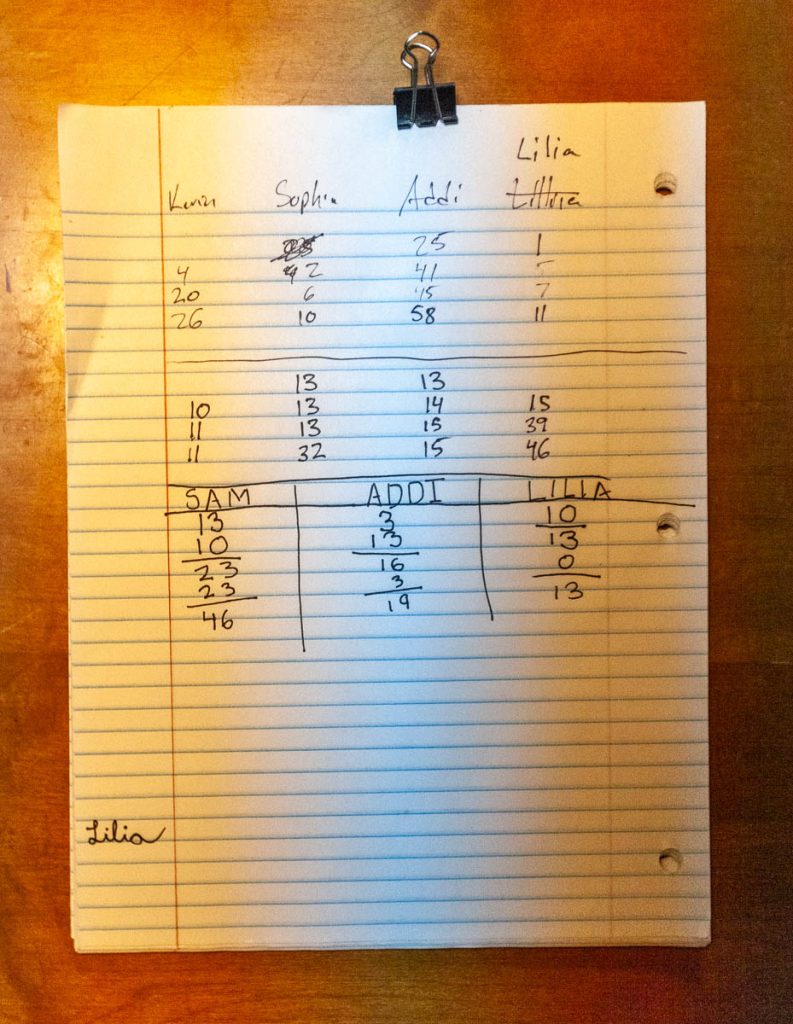 Lilia
Kevin Sophie Addi
25 1
4 42 41
20 6 45 7
26 10 58 11
13 13
10 13 14 15
11 13 15 39
11 32 15 46
SAM ADDI LILIA
13 3 10
10 13 13
23 16 0
23 3 13
46 19
Lilia